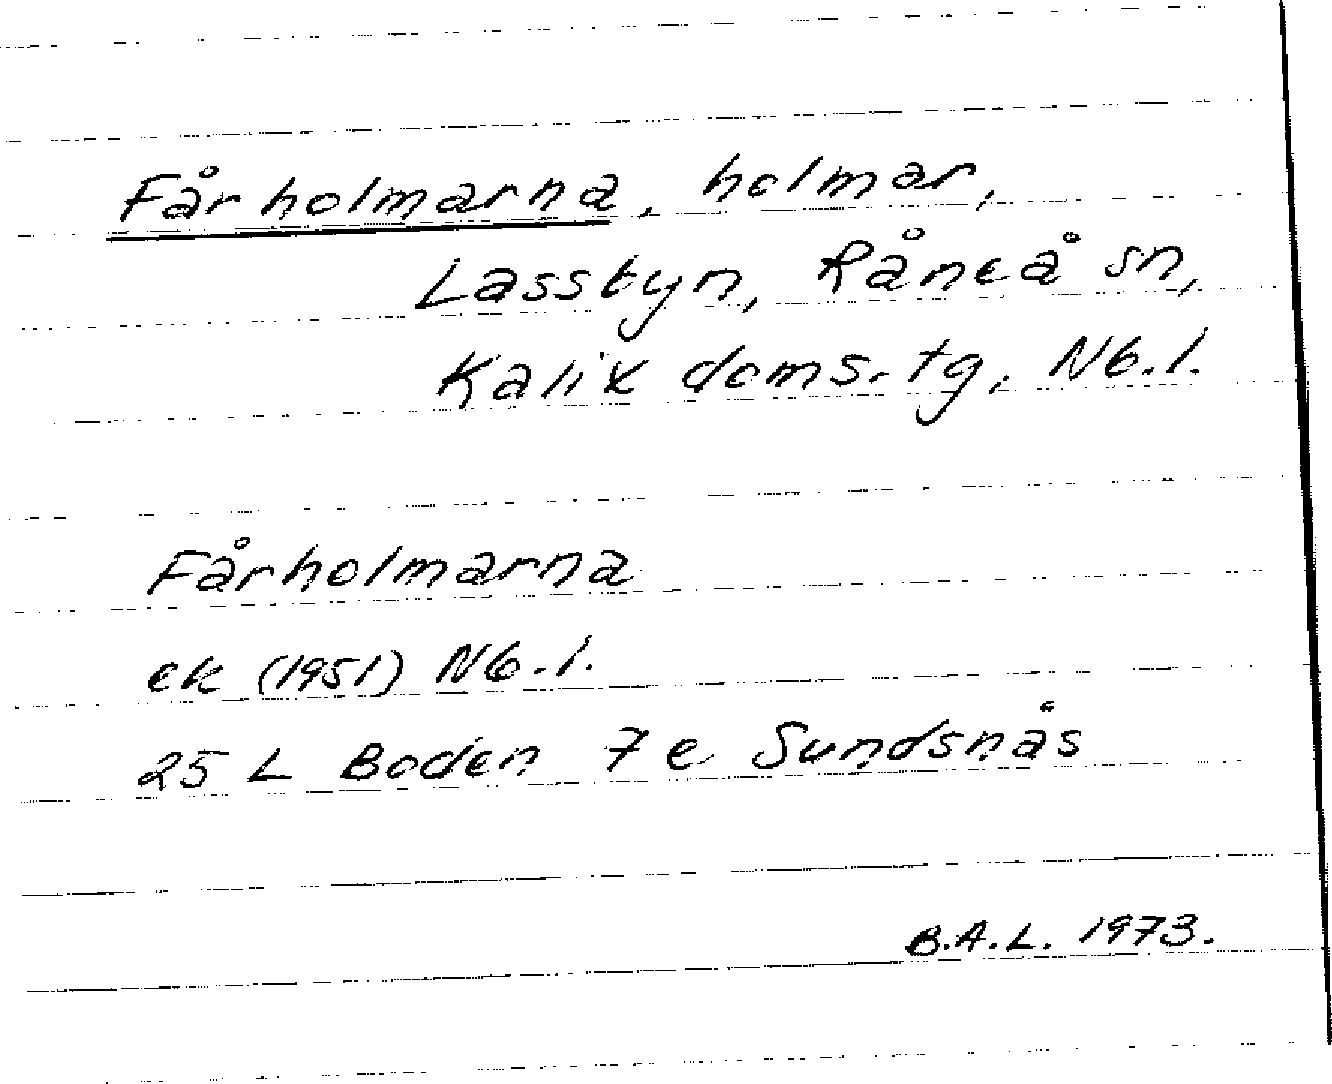 Fårholmarna, holmar,
Lasstyn, Råneå sn,
Kalix doms.tg, Nb.l.
Fårholmarna
ek (1951) Nb.l.
25 L Boden 7 e Sundsnäs
B.A.L. 1973.